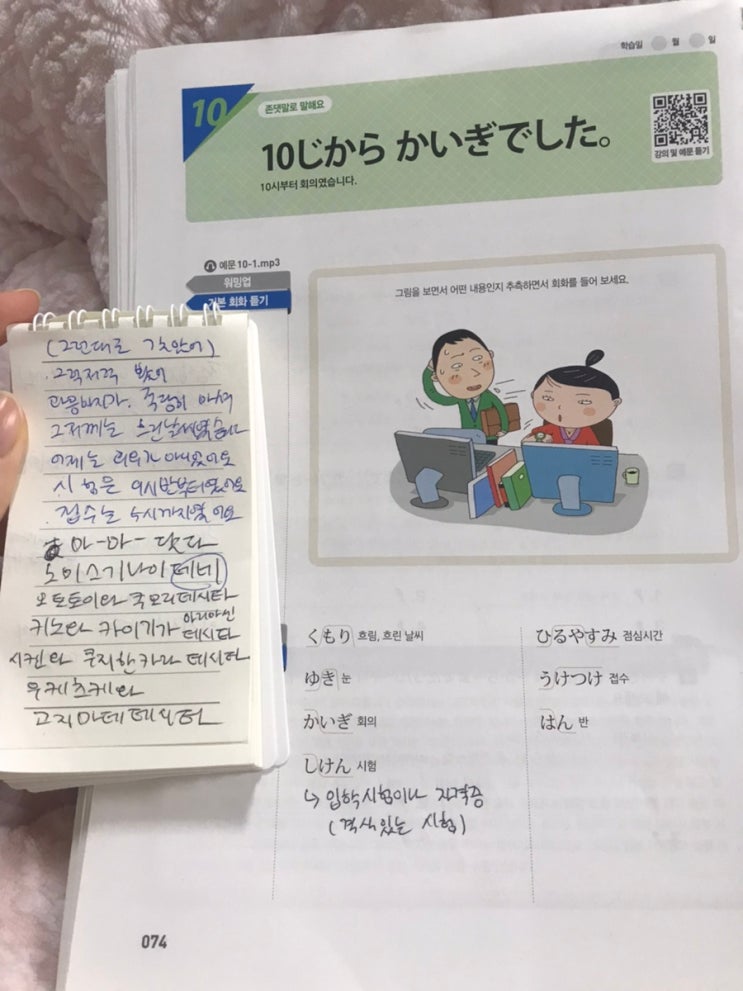 학습일 월 일
10
존댓말로 말해요
10じから かいぎでした。
10시부터 회의였습니다.
강의 및 예문 듣기
예문 10-1.mp3
워밍업
기본 회화 듣기
그림을 보면서 어떤 내용인지 추측하면서 회화를 들어 보세요.
くもり 흐림, 흐린 날씨
ゆき 눈
かいぎ 회의
しけん 시험
↳ 입학시험이나 자격증
(격식있는 시험)
ひるやすみ 점심시간
うけつけ 접수
はん 반
074
(그런대로
그럭저럭
그저께는 흐린날씨였습니다
어제는 회의가
시험은 9시반부터였어요
접수는 5시까지였어요
마-마- 닷다
노미스기나이데네
오토토이와 쿠모리데시타
키노와 카이기가 아리마센데시타
시켄와 쿠지한카라 데시타
우케츠케와
고지마데데시타